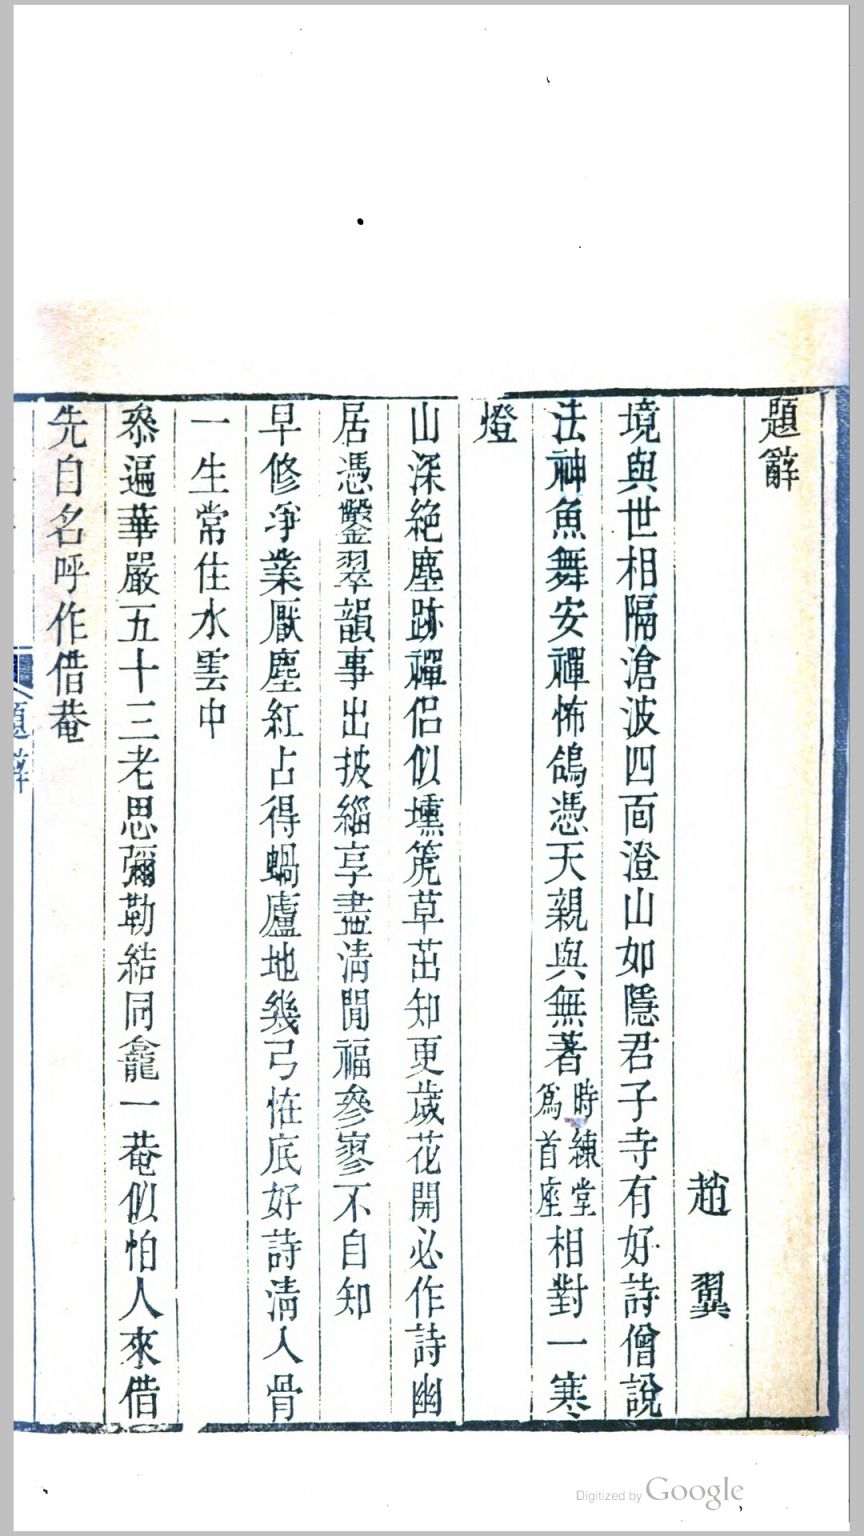 題辭
趙翼
境與世相隔滄波四面澄山如隱君子寺有好詩僧說
法神魚舞安禪怖鴿憑天親與無著時練堂爲首座相對一寒
燈
山深絶塵跡禪侶似壎箎草茁知更歲花開必作詩幽
居憑鑿翠韻事出披緇享盡淸閒福參寥不自知
早修淨業厭塵紅占得蝸廬地幾弓恠底好詩淸入骨
一生常住水雲中
叅遍華嚴五十三老思彌勒結同龕一菴似怕人來借
先自名呼作借菴
題辭
Digitized by Google